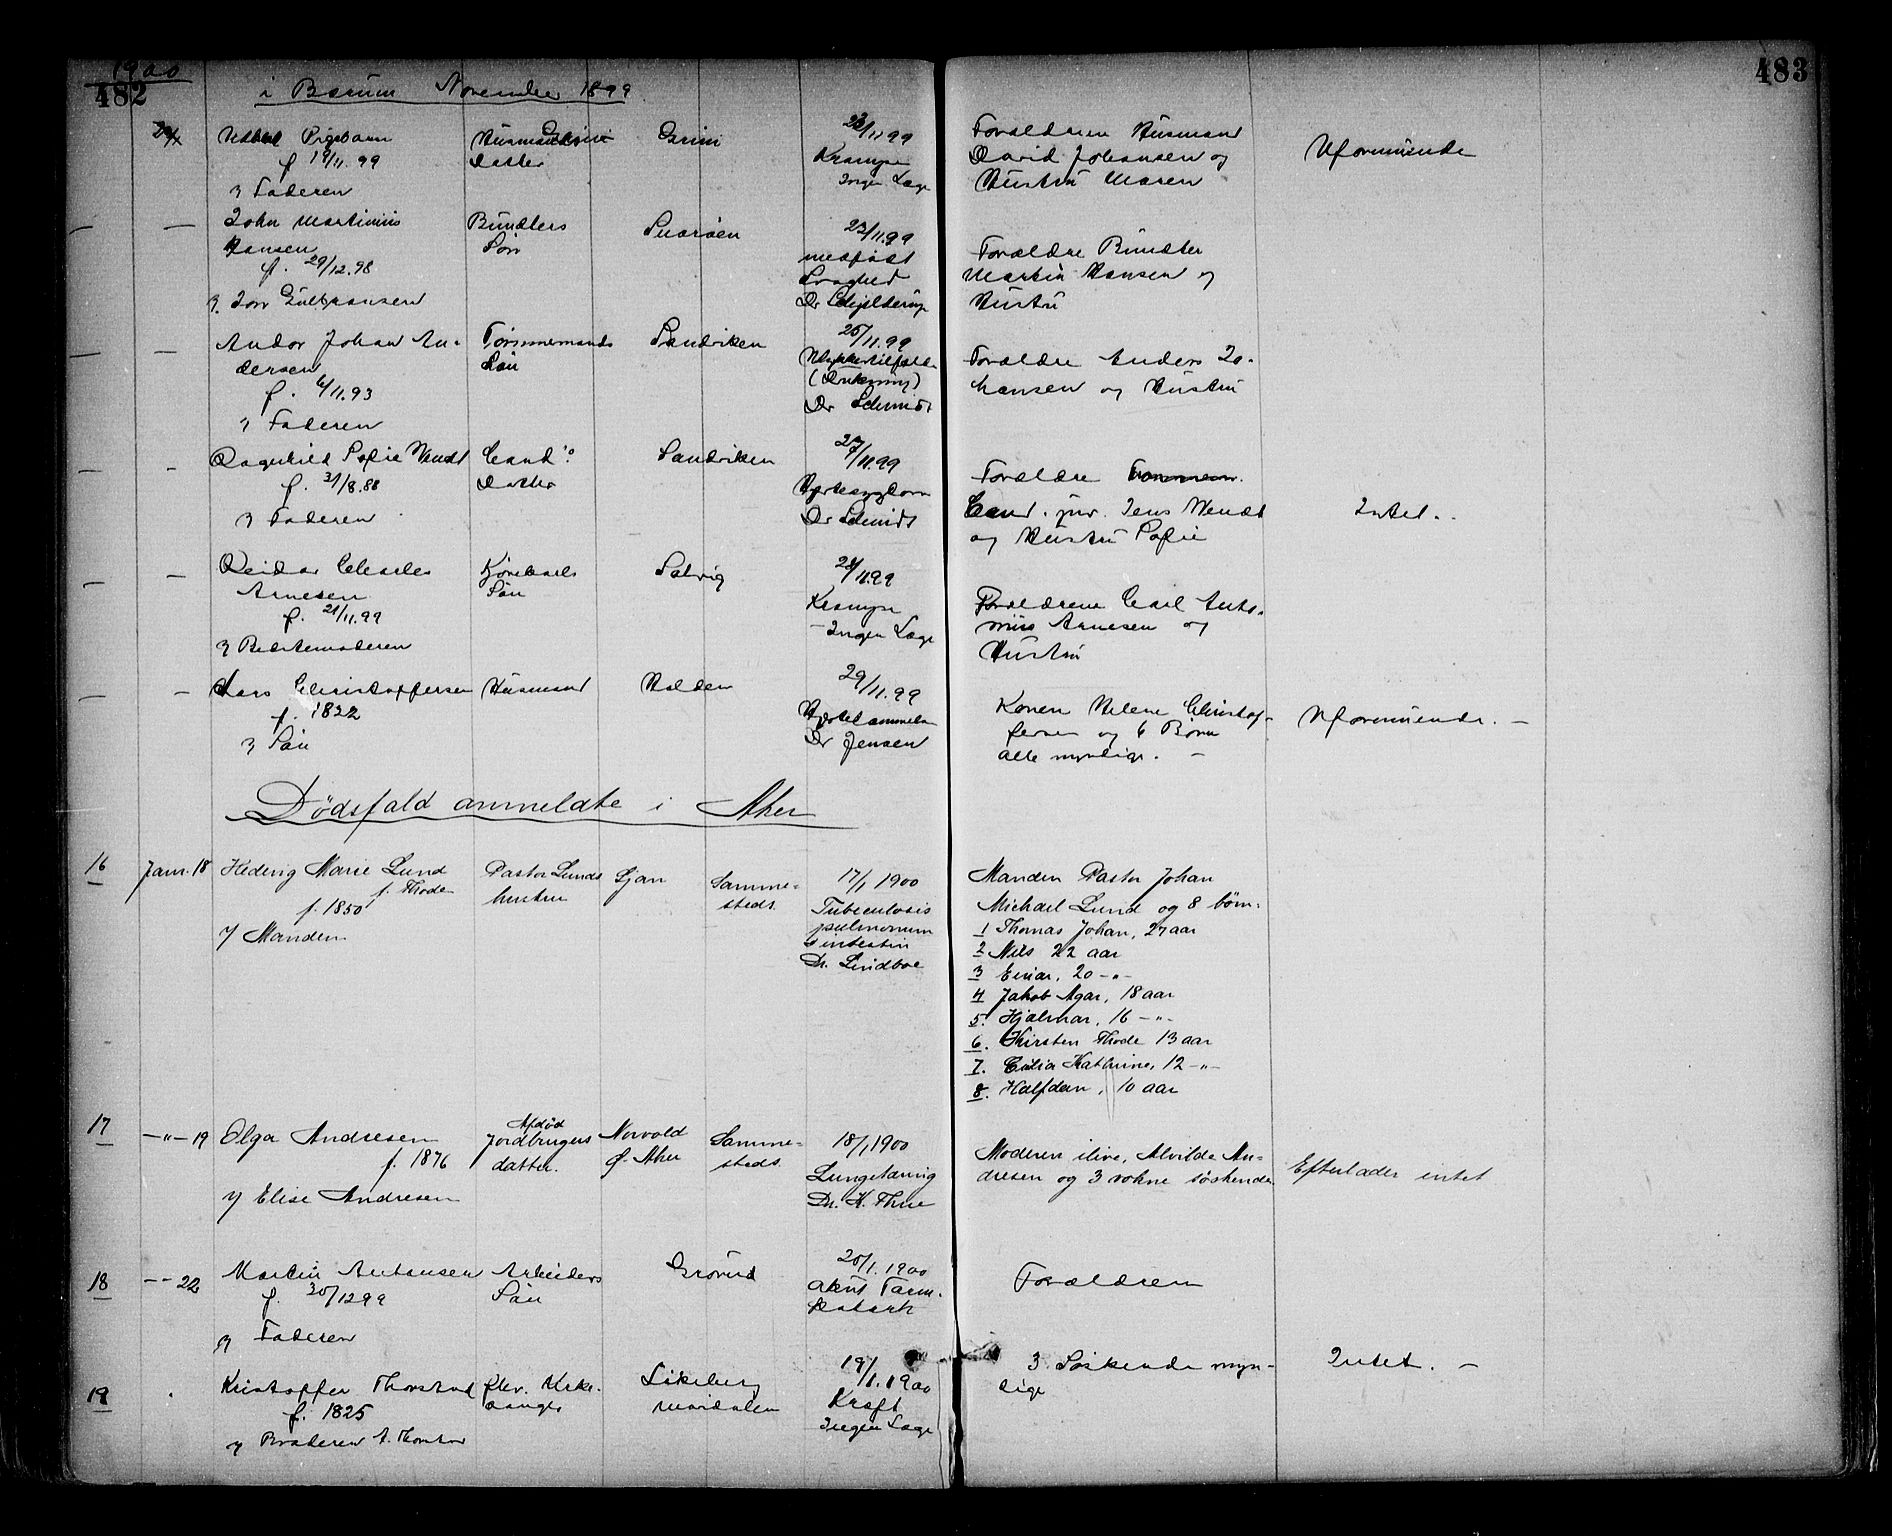 1900
482
483
i Bærum November 1899
Udøbt Pigebarn
f 19/11.99
Faderen
Husmands
Datter
Grini
23/11 99
Krampe
Ingen Læge
Forældrene Husmand
David Johansen og
Hustru Maren
Uformuende
— —
John Martinius
Hansen
f. 29/12.98
Gulbransen
Søn
Snarøen
23/11.99
medfødt
Svaghed
Dr Schjelderup
Forældre
Martin Hansen og
Hustru
— —
Andor Johan An-
dersen
f. 6/11.93
Faderen
Tømmermands
Søn
Sandviken
25/11.99
Ulykkestilfælde
(Drukning)
Dr Schmidt
Forældre Anders Jo-
hansen og Hustru
— —
Dagnhild Sofie Wendt
f. 31/8.88
Faderen
Cand:
Datter
Sandviken
27/11.99
Hjertesygdom
Dr Schmidt
Forældre
Cand. jur. Jens Wendt
og Hustru Sofie
Intet. -
— —
Reidar Charles
Arnesen
f. 21/11.99
Bedstemoderen
Kjørekarls
Søn
Solvig
28/11.99
Krampe
- Ingen Læge
Forældrene Carl Anto-
nius Arnesen og
Hustru
— —
Lars Christoffersen
f. 1822
Søn
Husmand
29/11.99
Hjertelammelse
Dr Jensen
Konen Helene Christof-
fersen og 6 Børn
alle myndige. —
Uformuende. —
Dødsfald anmeldte i Aker
16
Janr. 18
Hedevig Marie Lund
f. Thode
f. 1850
v/ Manden
Pastor Lunds
hustru
Ljan
Samme-
steds
17/1 1900
Tuberculosis
pulmonum
& intestin
Dr. Lindboe
Manden Pastor Johan
Michael Lund og 8 børn.
1 Thomas Johan, 27 aar
2 Nils 22 aar
3 Einar, 20 -"-
4 Jakob Agar, 18 aar
5. Hjalmar, 16 -"-
6. Kirsten Thode 13 aar
7. Cecilia Kathrine, 12 -"-
8. Halfdan, 10 aar
17
-"- 19
Olga Andresen
f. 1876
v/ Elise Andresen
Afdød
Jordbrugers
datter.
Norvold
Ø. Aker
Samme-
steds
18/1 1900
Lungetæring
Dr. K. Thue
Moderen ilive, Alvilde An-
dresen og 3 voxne søskende
Efterlader intet
18
-- 22
Martin Antonsen
f. 30/12 99
Faderen
Arbeiders
Søn
Grorud
20/1.1900
Akut Tarm-
katarh
Forældrene
19
Kristoffer Thorstad
f. 1825
v/ Broderen A. Thorstad
sanger
Maridalen
19/1.1900
Kræft
Ingen Læge
3 Søskende myn-
dige
Intet. —